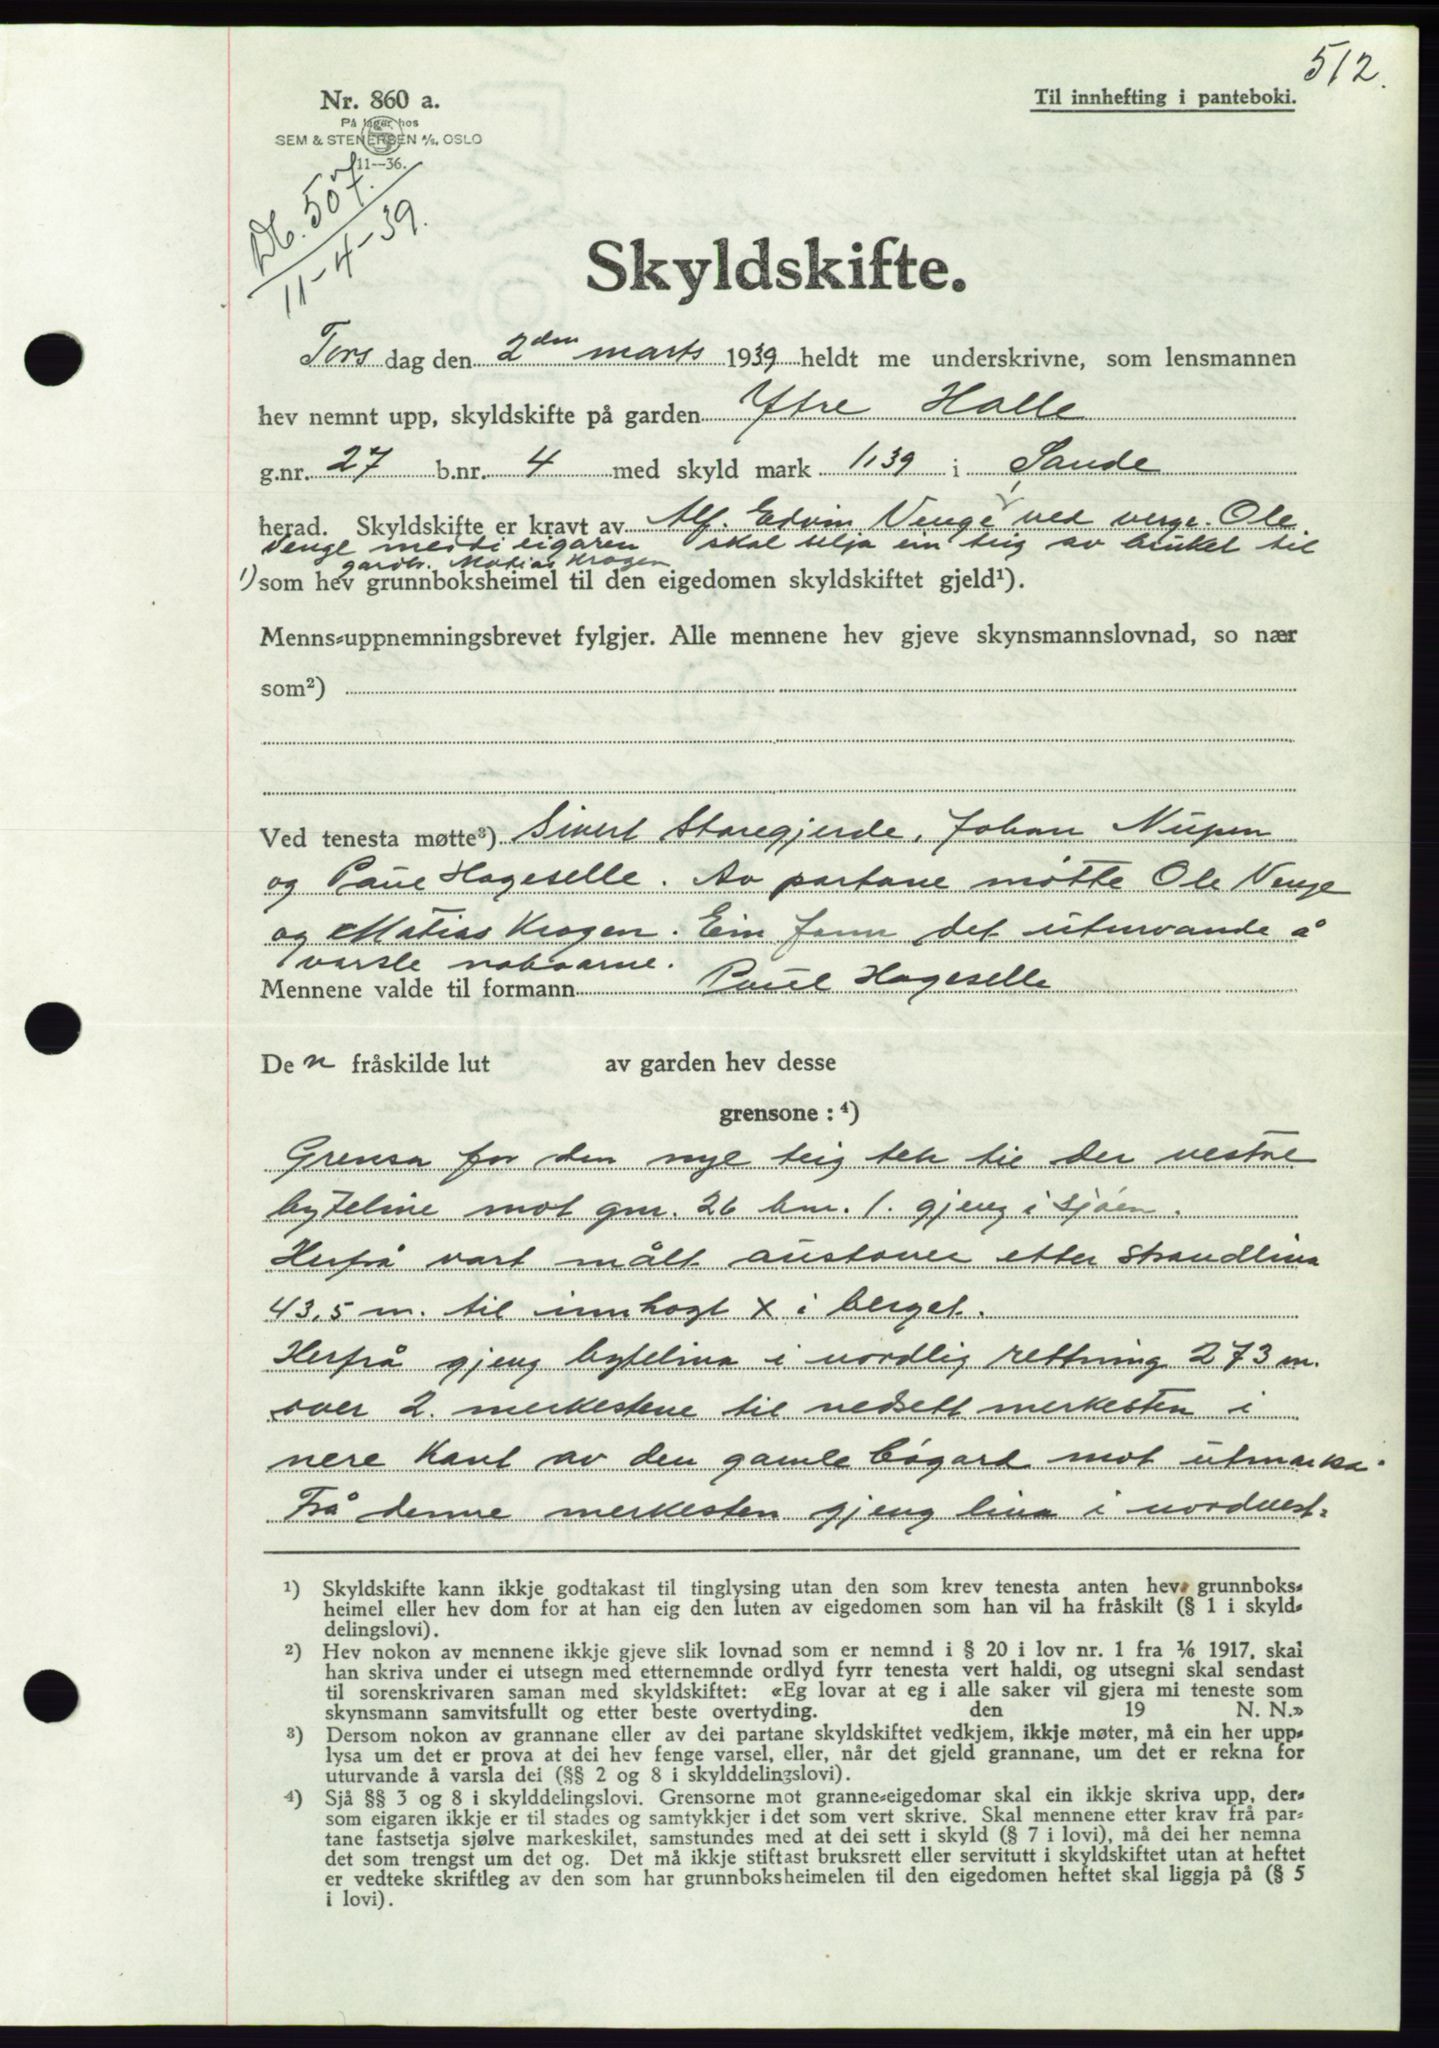 512.
Nr. 860 a.
Til innhefting i panteboki.
På lager hos
SEM & STENERSEN A/S, OSLO
11-36.
Db. 507.
11-4-39.
Skyldskifte.
Tors dag den 2den marts 1939 heldt me underskrivne, som lensmannen
hev nemnt upp, skyldskifte på garden Ytre Halle
g.nr. 27 b.nr. 4 med skyld mark 1,39 i Sande
herad. Skyldskifte er kravt av Alf. Edvin Venge ved verge. Ole
Venge med di eigaren skal selja ein teig av bruket til
gardbr. Matias Krogen
1) som hev grunnboksheimel til den eigedomen skyldskiftet gjeld¹).
Menns-uppnemningsbrevet fylgjer. Alle mennene hev gjeve skynsmannslovnad, so nær
som²)
Ved tenesta møtte³) Sivert Staregjerde, Johan Nupen
og Paul Hageselle. Av partane møtte Ole Venge
og Matias Krogen. Ein fann det uturvande å
varsle naboarne.
Mennene valde til formann Paul Hageselle
De n fråskilde lut av garden hev desse
grensone : ⁴)
Grensa for den nye teig tek til der vestre
byteline mot gnr. 26 bnr. 1. gjeng i sjøen.
Herfrå vart målt austover etter strandlina
43,5 m. til innhogt X i berget.
Herfrå gjeng bytelina i nordlig rettning 273 m.
over 2. merkestene til nedsett merkesten i
nere kant av den gamle bøgard mot utmarka.
Frå denne merkesten gjeng lina i nordvest-
¹) Skyldskifte kann ikkje godtakast til tinglysing utan den som krev tenesta anten hev grunnboks-
heimel eller hev dom for at han eig den luten av eigedomen som han vil ha fråskilt (§ 1 i skyld-
delingslovi).
²) Hev nokon av mennene ikkje gjeve slik lovnad som er nemnd i § 20 i lov nr. 1 fra 1/6 1917, skal
han skriva under ei utsegn med etternemnde ordlyd fyrr tenesta vert haldi, og utsegni skal sendast
til sorenskrivaren saman med skyldskiftet: «Eg lovar at eg i alle saker vil gjera mi teneste som
skynsmann samvitsfullt og etter beste overtyding. den 19 N. N.»
³) Dersom nokon av grannane eller av dei partane skyldskiftet vedkjem, ikkje møter, må ein her upp-
lysa um det er prova at dei hev fenge varsel, eller, når det gjeld grannane, um det er rekna for
uturvande å varsla dei (§§ 2 og 8 i skylddelingslovi).
⁴) Sjå §§ 3 og 8 i skylddelingslovi. Grensorne mot granne-eigedomar skal ein ikkje skriva upp, der-
som eigaren ikkje er til stades og samtykkjer i det som vert skrive. Skal mennene etter krav frå par-
tane fastsetja sjølve markeskilet, samstundes med at dei sett i skyld (§ 7 i lovi), må dei her nemna
det som trengst um det og. Det må ikkje stiftast bruksrett eller servitutt i skyldskiftet utan at heftet
er vedteke skriftleg av den som har grunnboksheimelen til den eigedomen heftet skal liggja på (§ 5
i lovi).